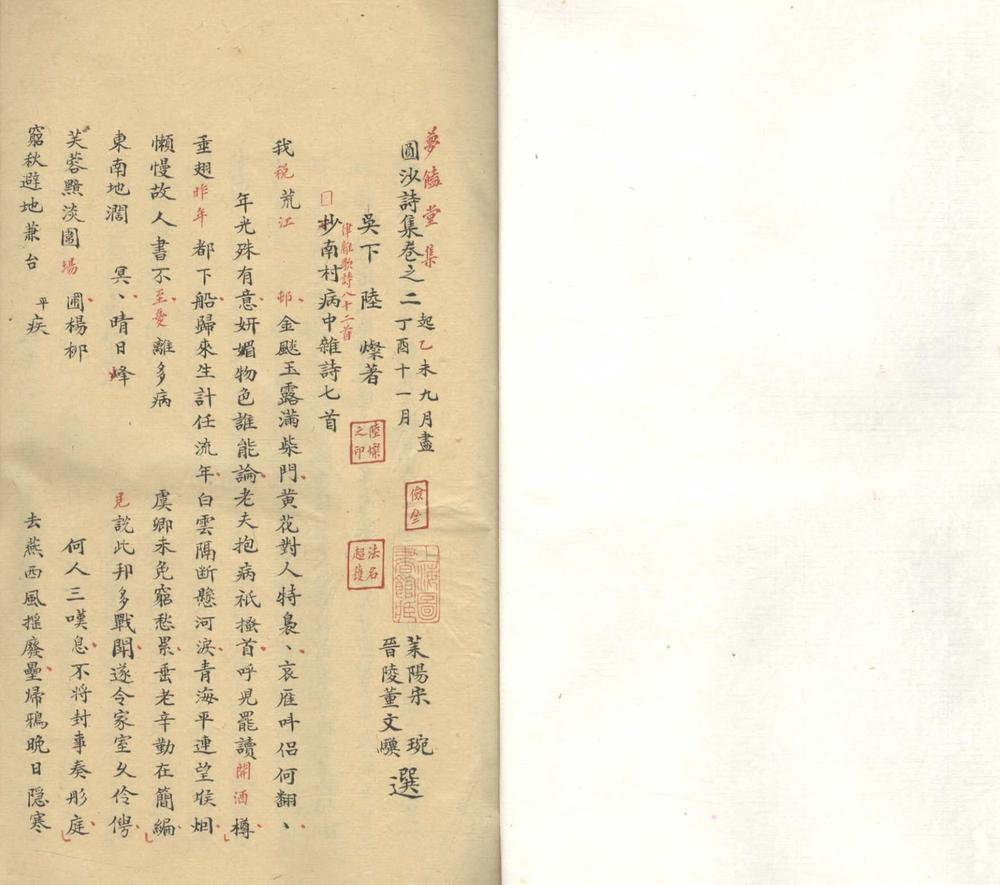 夢饁堂集
圓沙詩集卷之二 起乙未九月盡
丁酉十一月
萊陽宋琬
晉陵董文驥 選
吳下 陸 燦著
律雜歌詩八十二首
抄南村病中雜詩七首
我税荒江邨金颷玉露滿柴門黄花對人特裊、哀雁呌侣何翻、
年光殊有意妍媚物色誰能論老夫抱病祇搔首呼兒罷讀開酒樽
垂翅昨年都下船歸來生計任流年白雲隔斷懸河淚青海平連望堠烟
懶慢故人書不至憂離多病虞卿未免窮愁累垂老辛勤在簡編
東南地濶冥、晴日烽見説此邦多戰鬭遂令家室久伶俜
芙蓉黯淡圖場圃楊柳何人三嘆息不將封事奏彤庭
窮秋避地兼台疾去燕西風摇廢壘歸鴉晚日隐寒
平
陸燦之印
儉叄
法名超護
上海圖書館藏